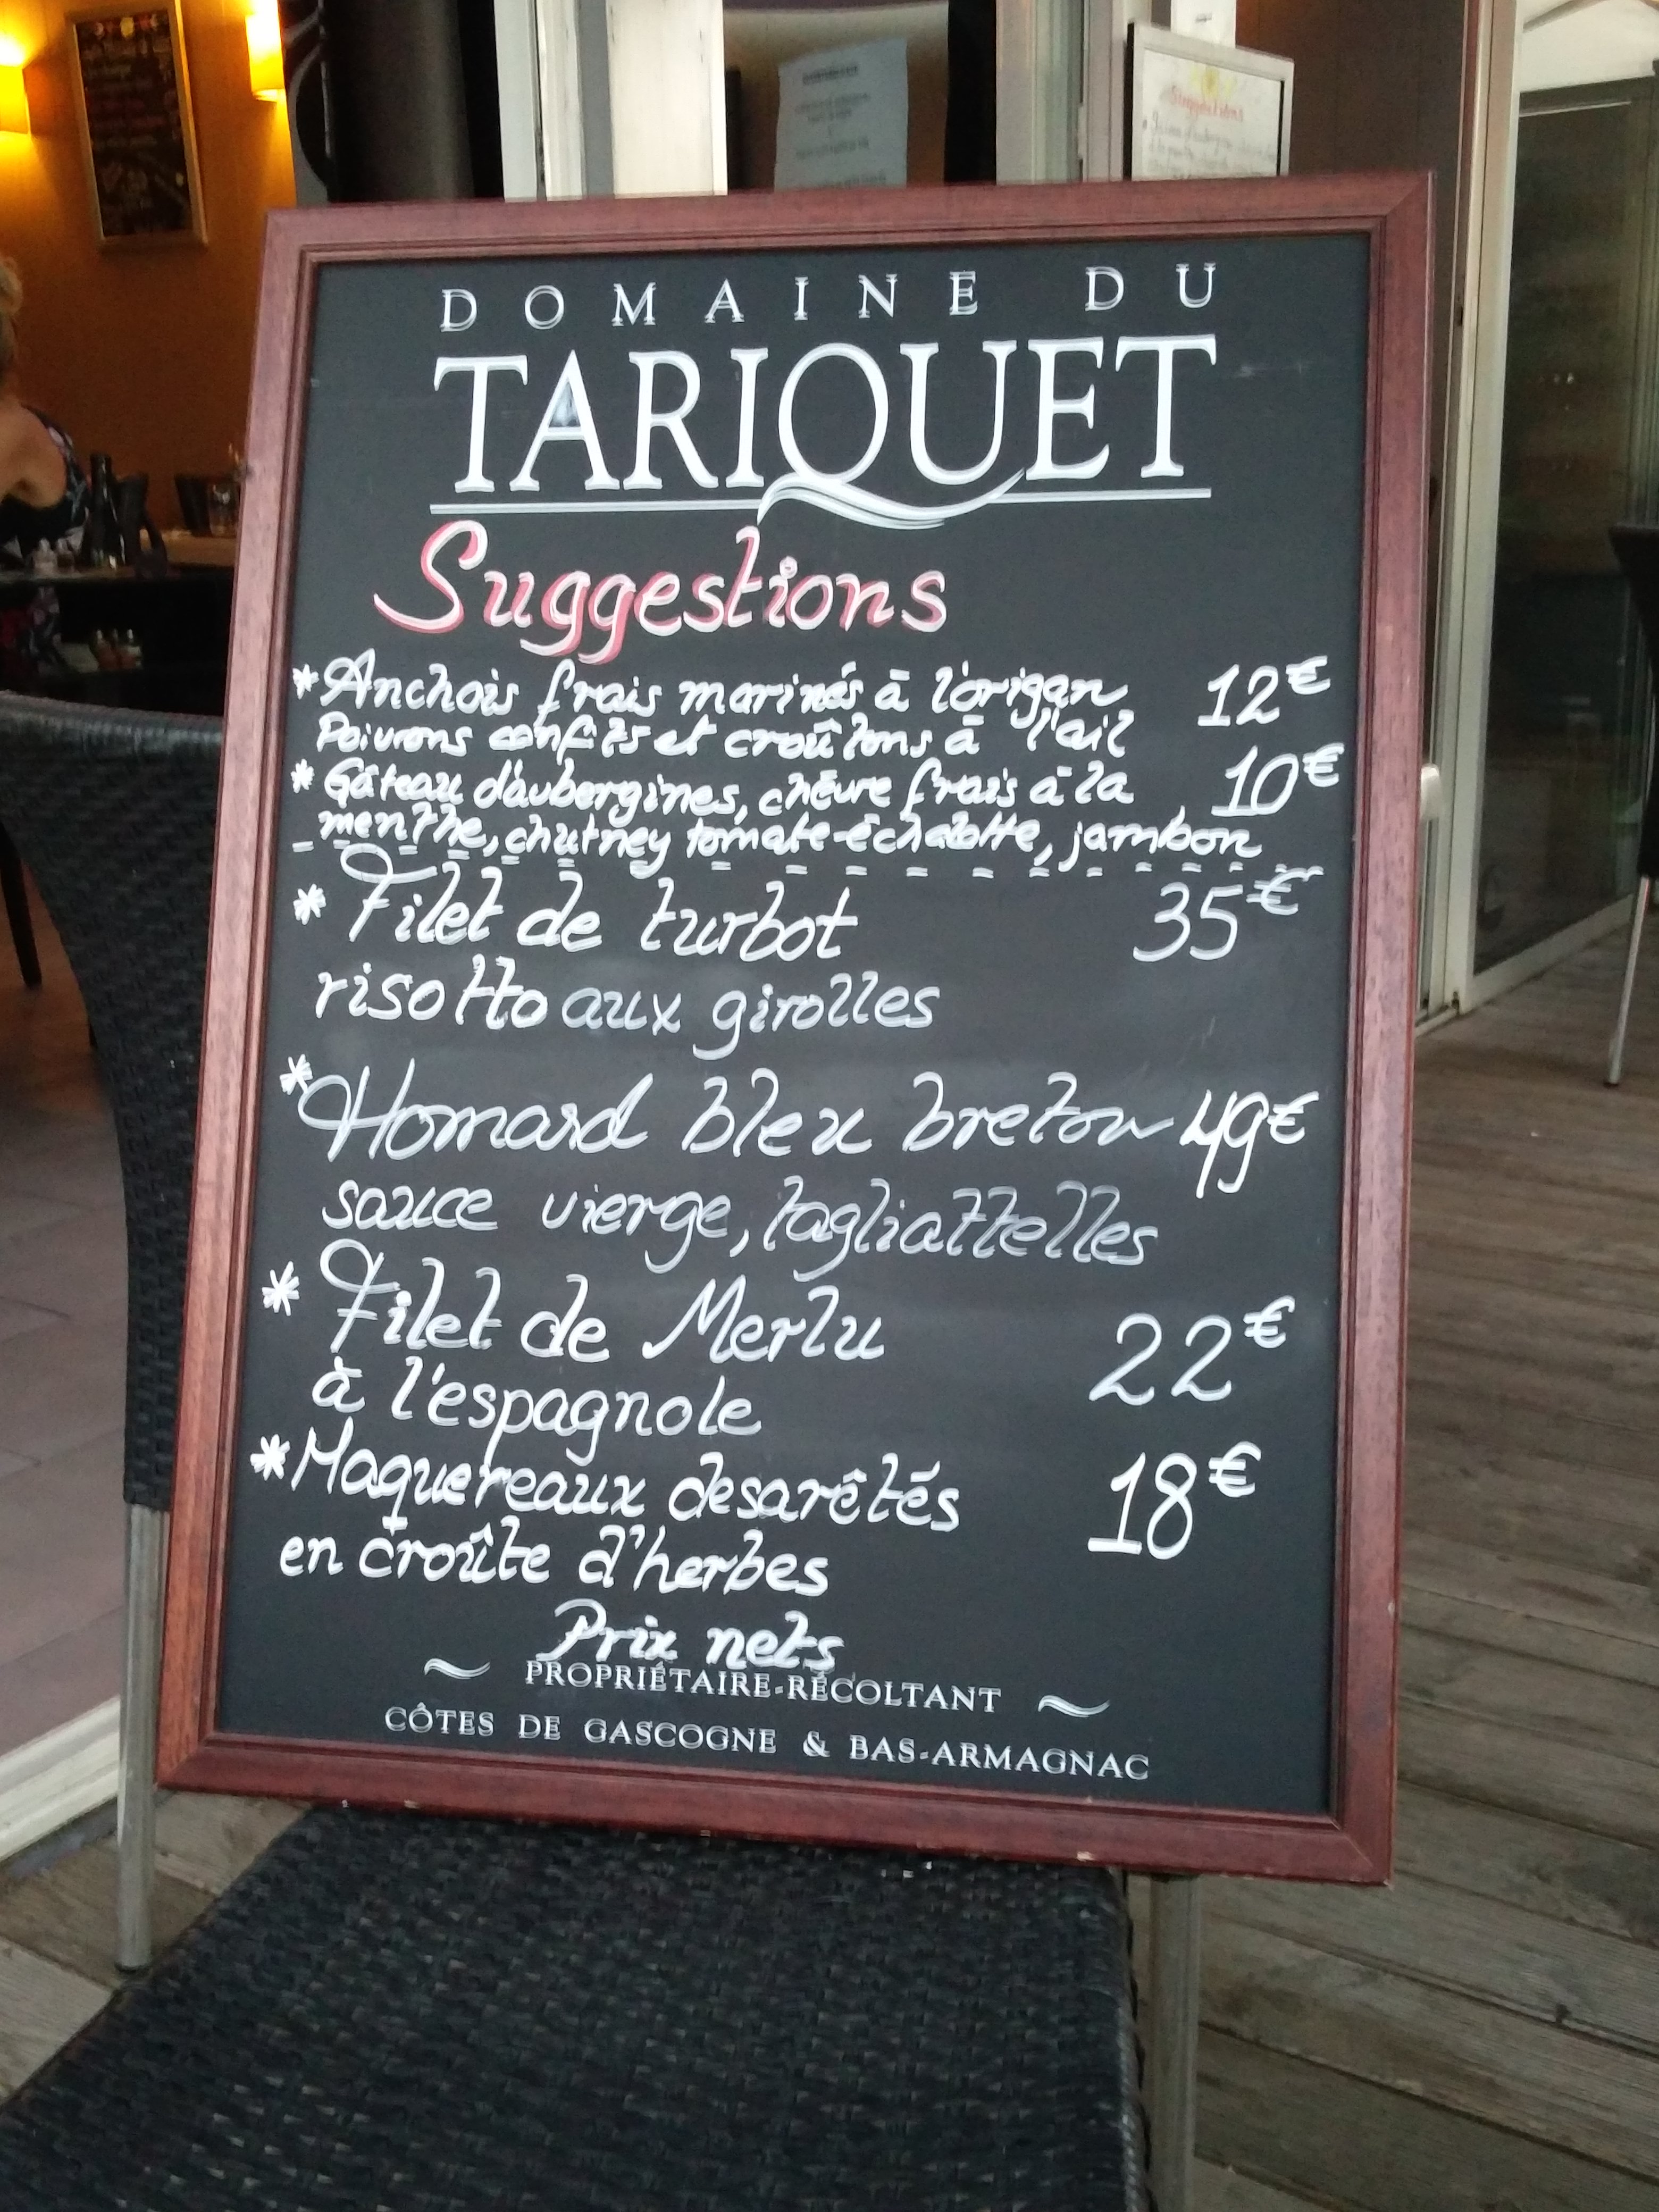 Suggestions
DOMAINE DU
TARIQUET
Suggestions
*Anchois frais marinés à l'origan 12€
Poivrons confits et croûtons à l'ail
*Gâteau d'aubergines, chèvre frais à la 10€
menthe, chutney tomate-échalotte, jambon
*Filet de turbot 35€
risotto aux girolles
*Homard bleu breton 49€
sauce vierge, tagliattelles
*Filet de Merlu 22€
à l'espagnole
*Maquereaux desarêtés 18€
en croûte d'herbes
Prix nets
PROPRIÉTAIRE-RÉCOLTANT
CÔTES DE GASCOGNE & BAS-ARMAGNAC